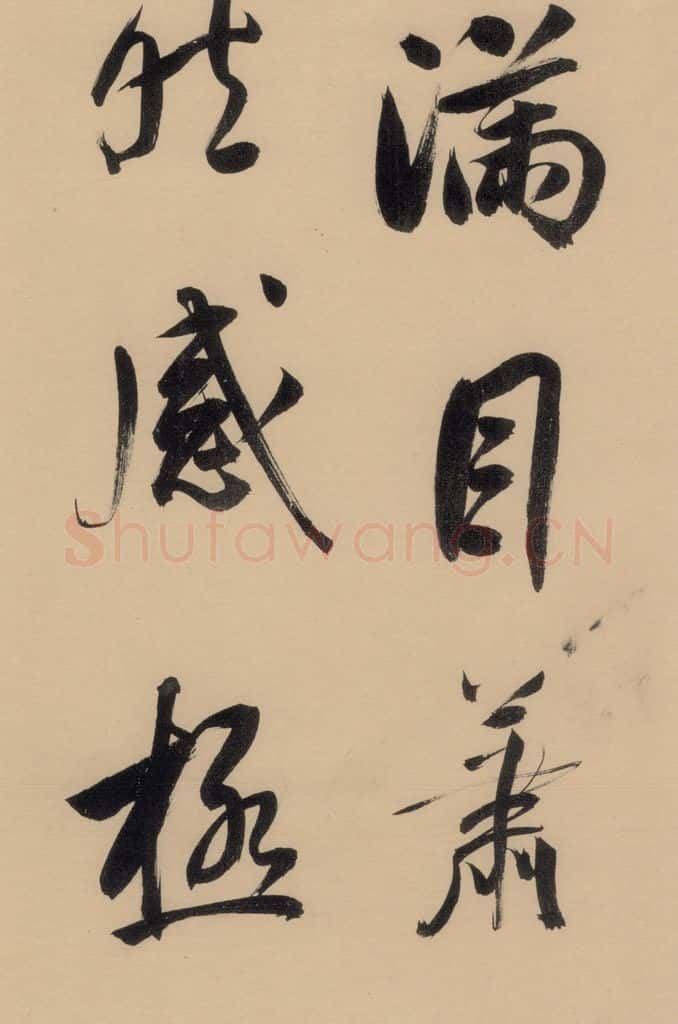 满目萧
然感极
Shufawang.CN